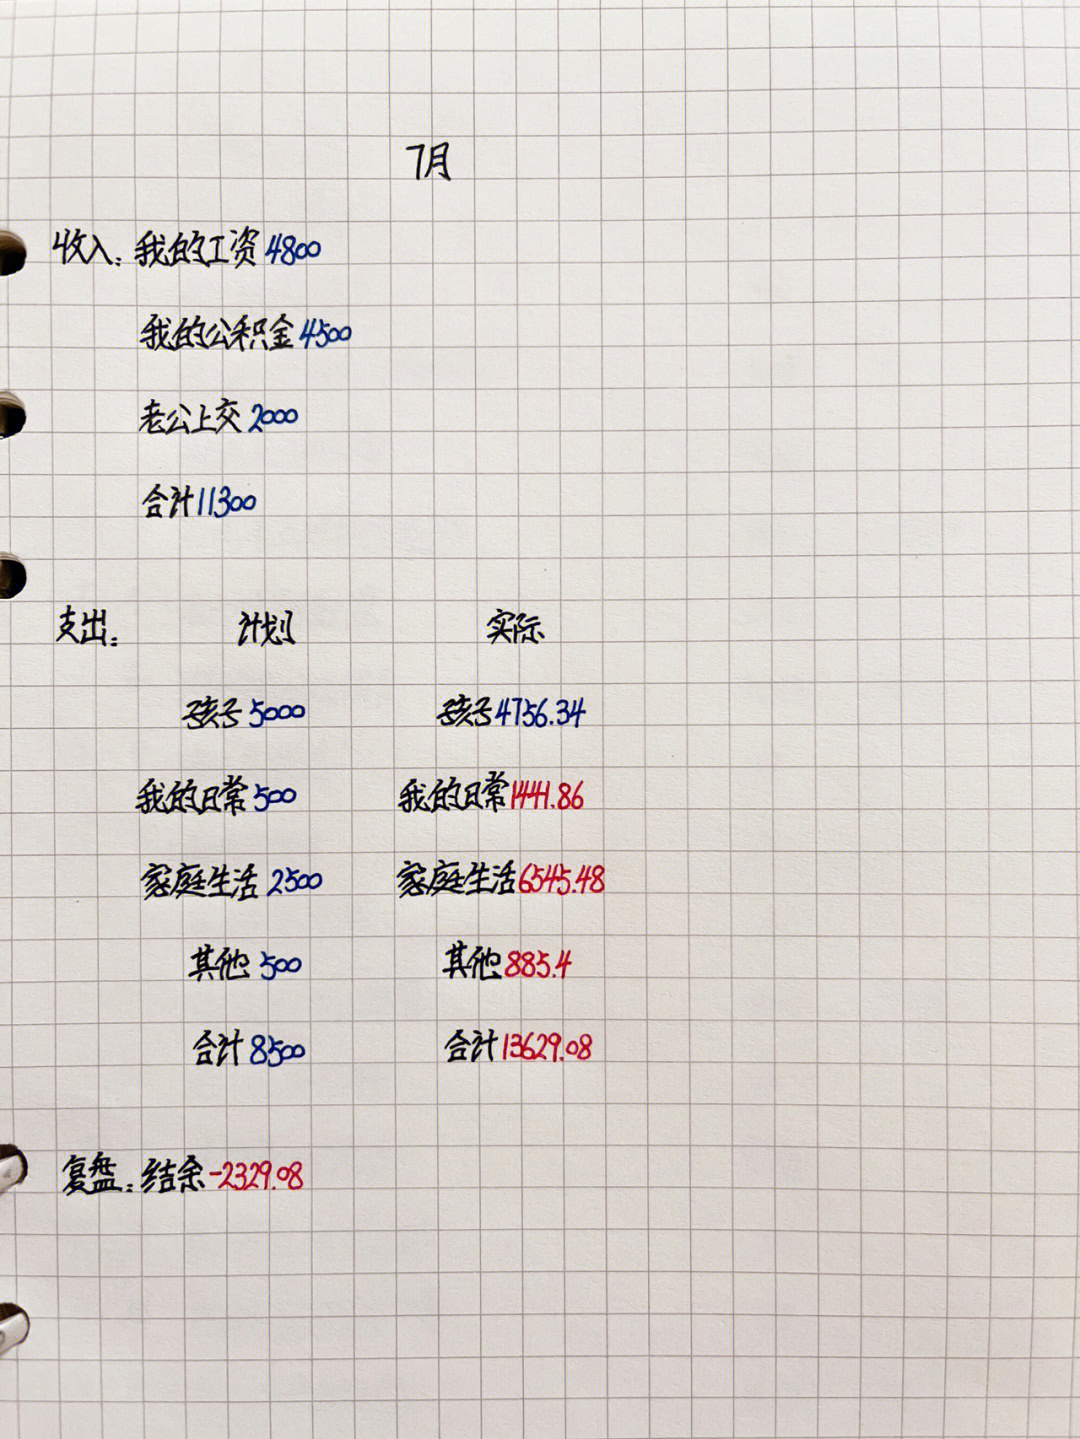 7月
收入：我的工资4800
我的公积金4500
老公上交2000
合计11300
支出： 计划 实际
孩子5000 孩子4756.34
我的日常500 我的日常1441.86
家庭生活2500 家庭生活6545.48
其他500 其他885.4
合计8500 合计13629.08
复盘：结余-2329.08